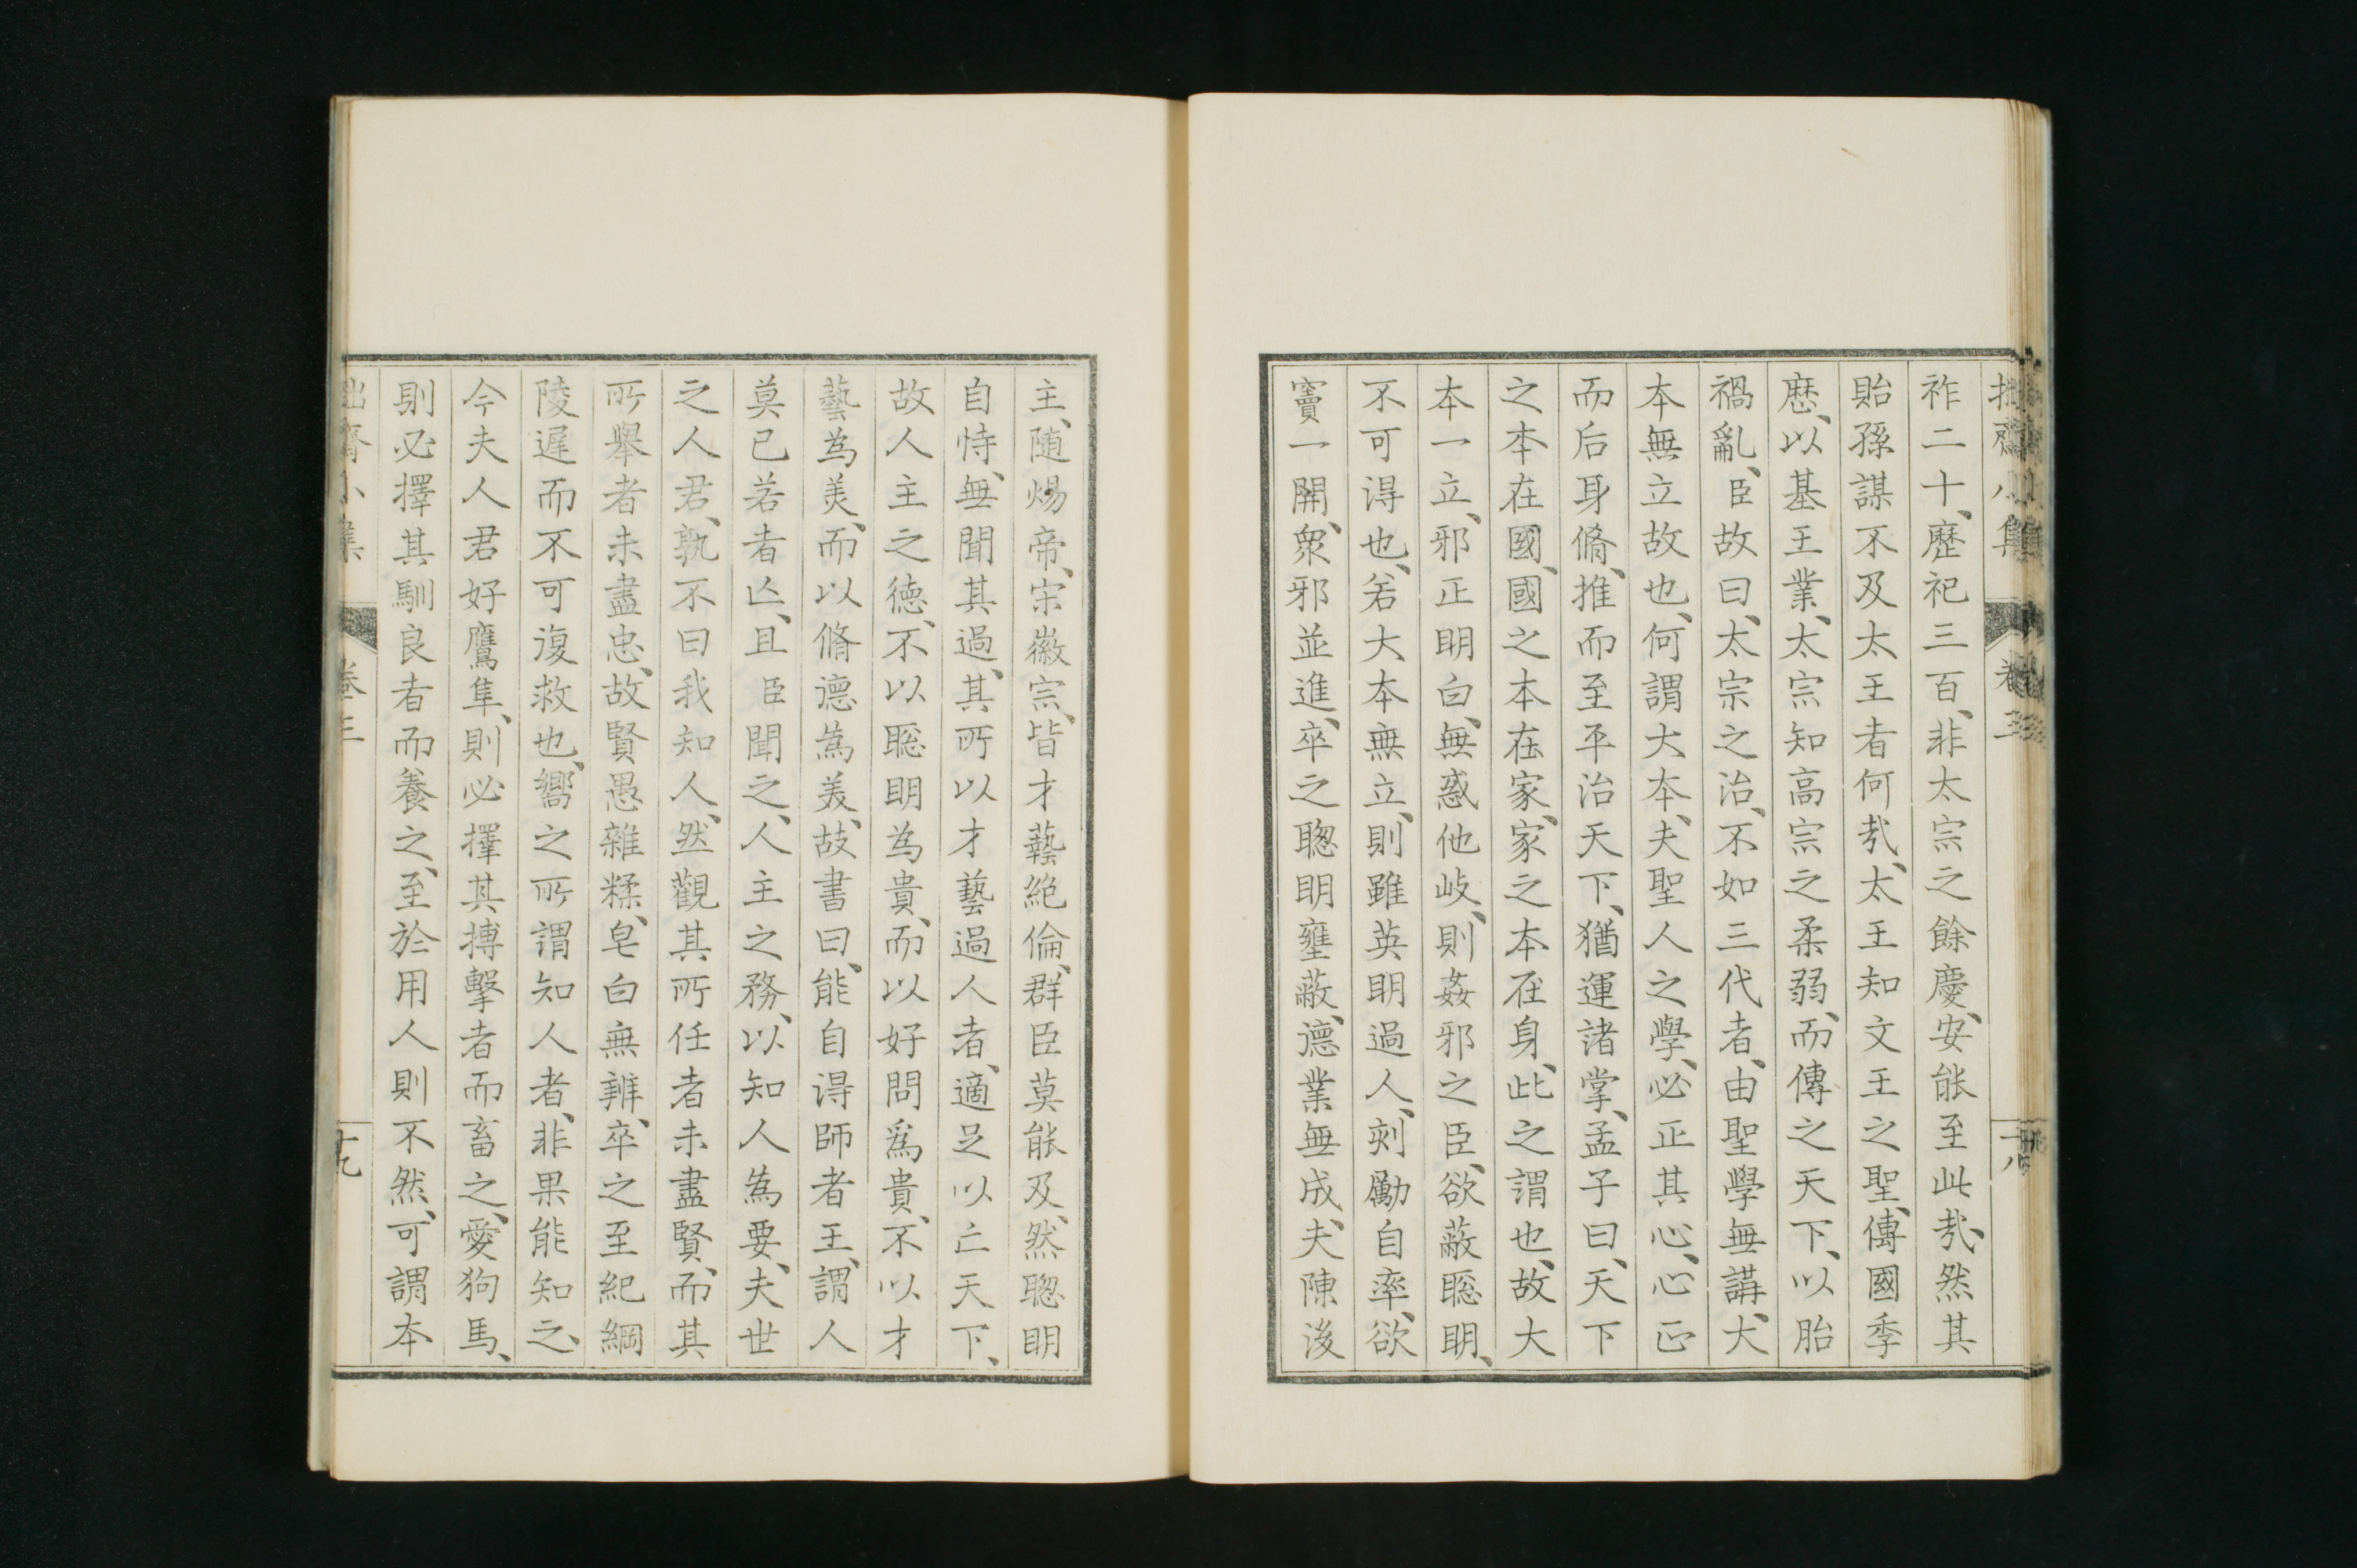 祚二十、歷祀三百、非太宗之餘慶、安能至此哉、然其
貽孫謀不及太王者何哉、太王知文王之聖、傳國季
歷、以基王業、太宗知高宗之柔弱、而傳之天下、以胎
禍亂、臣故曰、太宗之治、不如三代者、由聖學無講、大
本無立故也、何謂大本、夫聖人之學、必正其心、心正
而后身脩、推而至平治天下、猶運諸掌、孟子曰、天下
之本在國、國之本在家、家之本在身、此之謂也、故大
本一立、邪正明白、無惑他岐、則姦邪之臣、欲蔽聡明、
不可得也、若大本無立、則雖英明過人、刻勵自率、欲
竇一開、衆邪並進、卒之聰明壅蔽、德業無成、夫陳後
主、随煬帝、宋徽宗、皆才藝絶倫、群臣莫能及、然聰明
自恃、無聞其過、其所以才藝過人者、適足以亡天下、
故人主之德、不以聡明為貴、而以好問爲貴、不以才
藝為美、而以脩德為美、故書曰、能自得師者王、謂人
莫已若者亡、且臣聞之、人主之務、以知人為要、夫世
之人君、孰不曰我知人、然觀其所任者未盡賢、而其
所舉者未盡忠、故賢愚雜糅、皂白無辨、卒之至紀綱
陵遲而不可復救也、嚮之所謂知人者、非果能知之、
今夫人君好鷹隼、則必擇其搏擊者而畜之、愛狗馬、
則必擇其馴良者而養之、至於用人則不然、可謂本
拙齋小集 卷三 十九